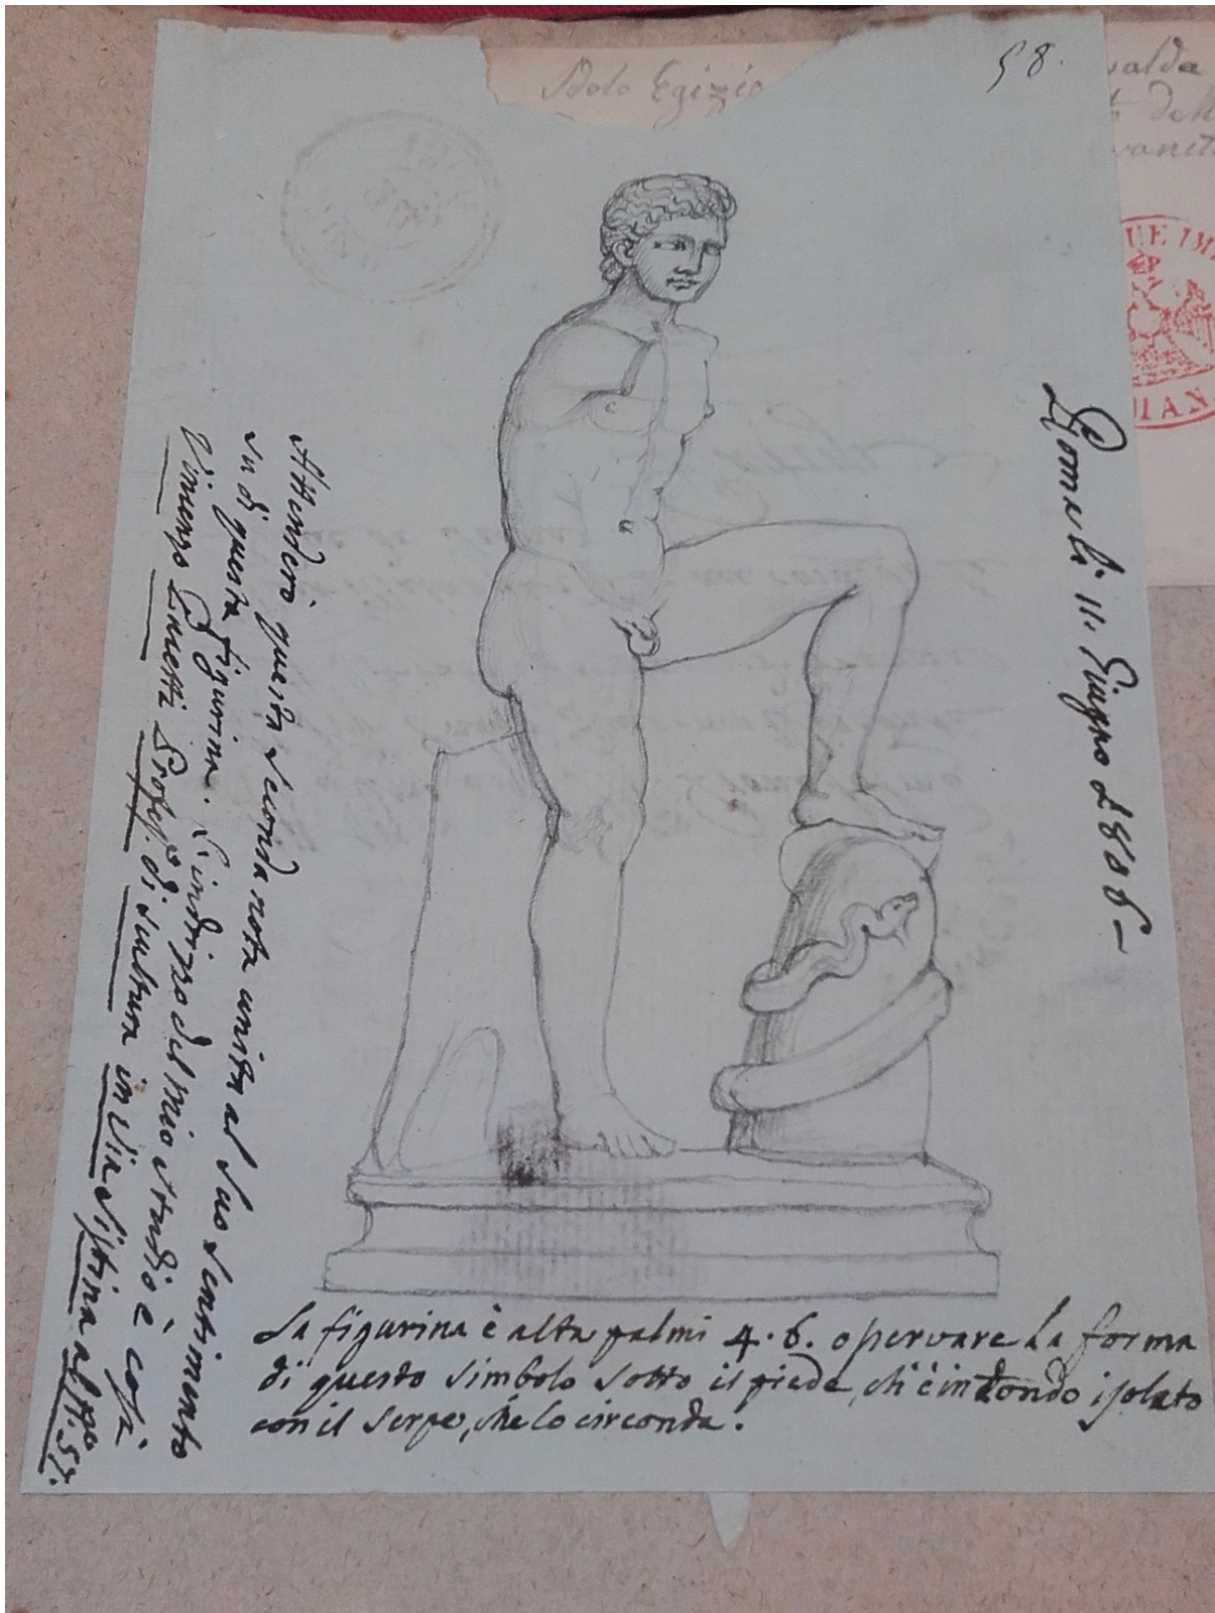 58.
Idolo Egizio
valda
dell
vanet
UE IM
IAN
Roma li 11. Giugno 1806 –
Attenderò questa seconda nota unita al suo sentimento
su di questa figurina. L'indirizzo del mio studio è così
Vincenzo Pacetti Profess.e di scultura in Via Sistina al N.o 51.
La figurina è alta palmi 4. 6. osservare la forma
di questo simbolo sotto il piede, ch'è in tondo isolato
con il serpe, che lo circonda.